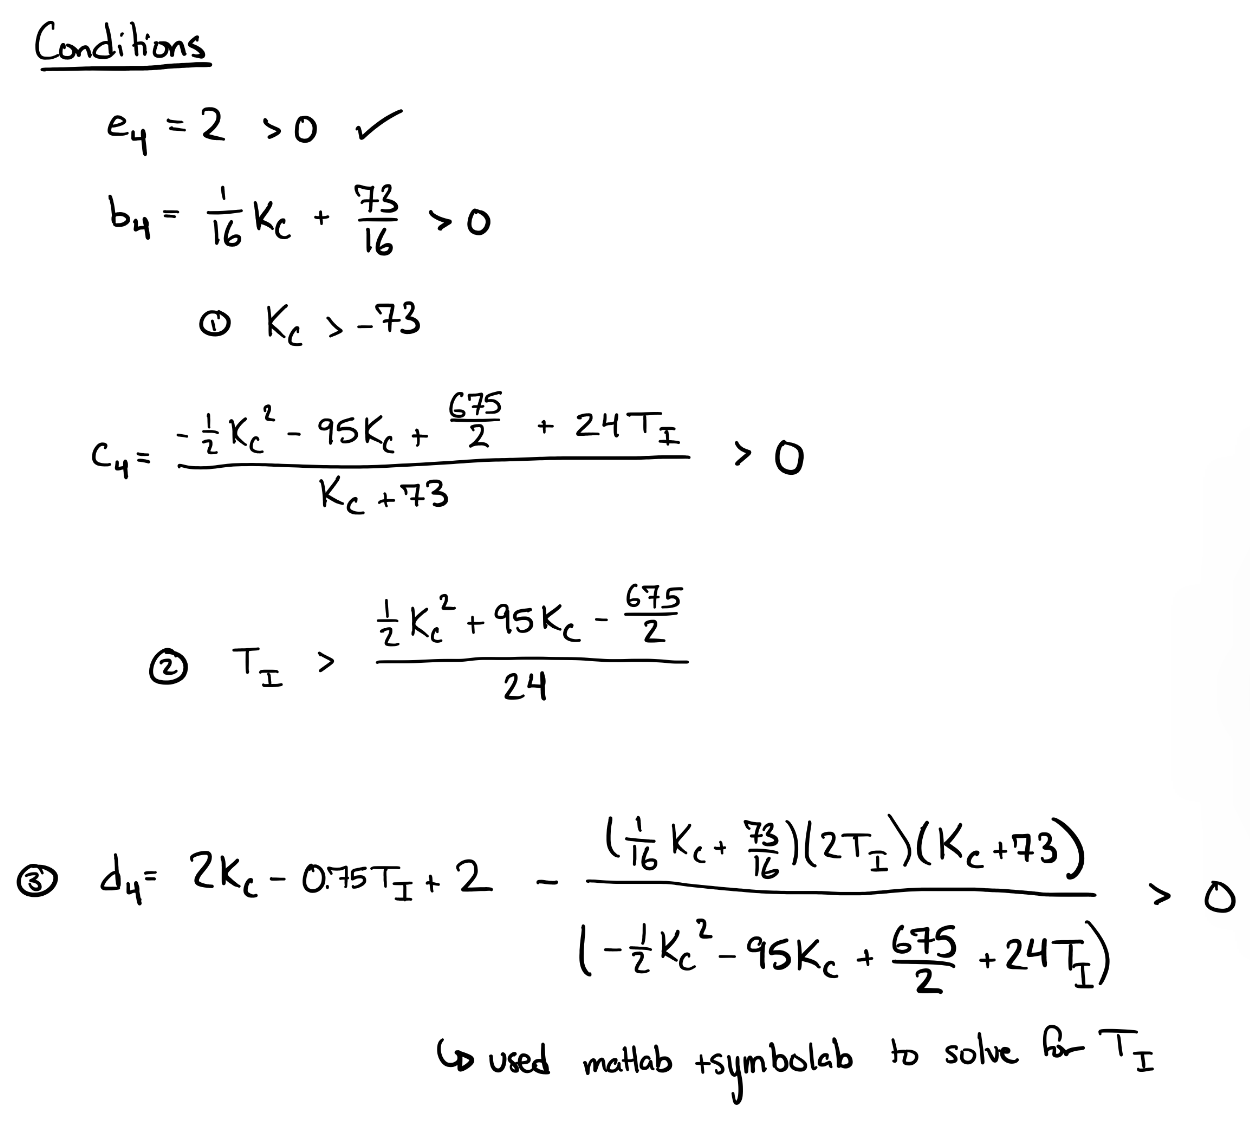 Conditions
e₄ = 2 > 0 ✓
b₄ = 1/16 K_C + 73/16 > 0
① K_C > -73
c₄ = (-1/2 K_C² - 95K_C + 675/2 + 24T_I) / (K_C + 73) > 0
② T_I > (1/2 K_C² + 95K_C - 675/2) / 24
③ d₄ = 2K_C - 0.75T_I + 2 - ((1/16 K_C + 73/16)(2T_I)(K_C + 73)) / (-1/2 K_C² - 95K_C + 675/2 + 24T_I) > 0
↳ used matlab + symbolab to solve for T_I